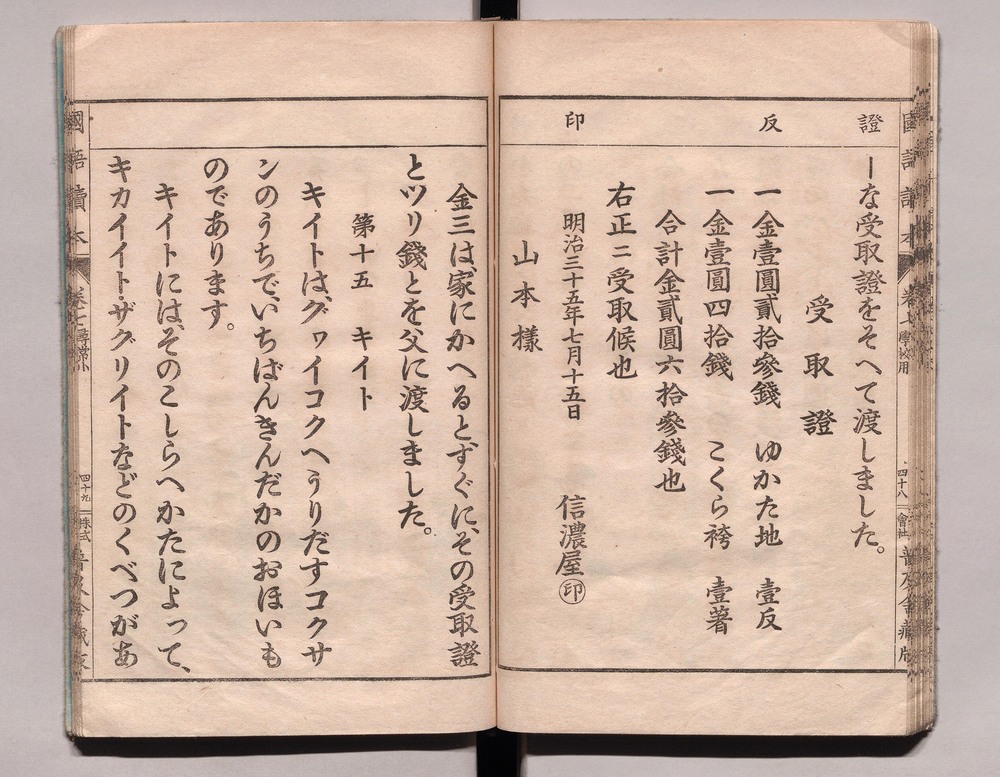 國語讀本
卷七 尋常小學校用
四十八
會社 普及舍藏版
證
反
印
ーな受取證をそへて渡しました。
受取證
一金壹圓貳拾參錢 ゆかた地 壹反
一金壹圓四拾錢 こくら袴 壹著
合計金貳圓六拾參錢也
右正ニ受取候也
明治三十五年七月十五日
信濃屋㊞
山本樣
金三は、家にかへるとすぐに、その受取證
とツリ錢とを父に渡しました。
第十五 キイト
キイトは、グヮイコクへうりだすコクサ
ンのうちで、いちばんきんだかのおほいも
のであります。
キイトには、そのこしらへかたによって、
キカイイト・ザグリイトなどのくべつがあ
國語讀本
四十九
株式